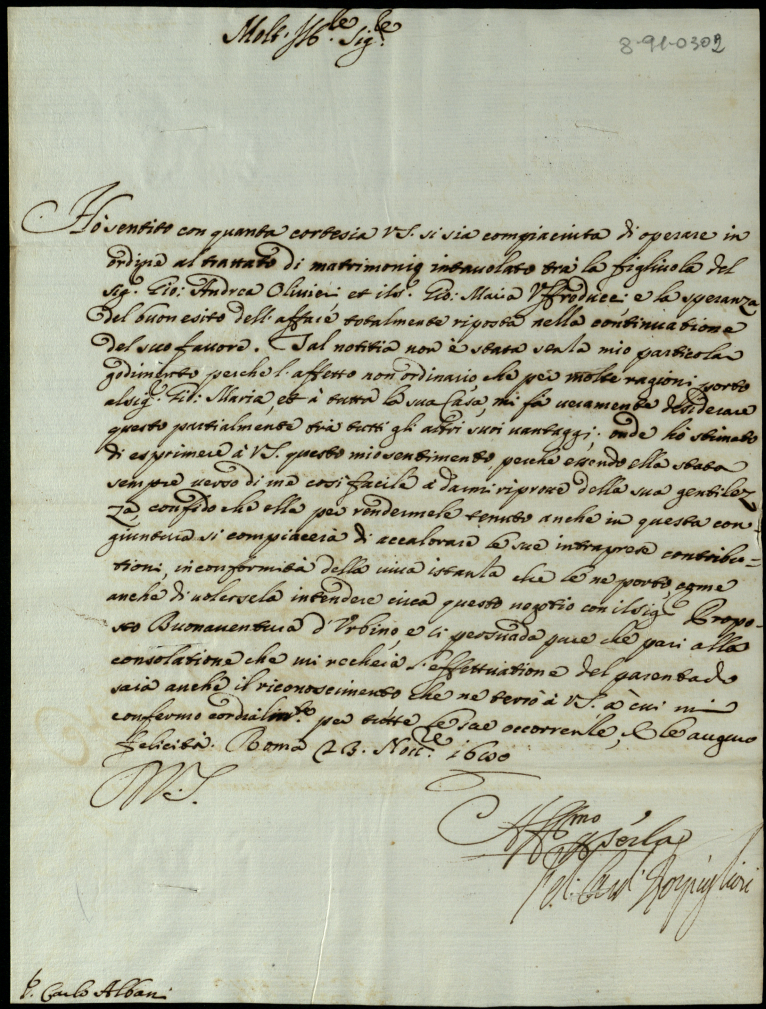 Molt' Ill.re Sig.re
8-91-0302
Hò sentito con quanta cortesia V.S. si sia compiaciuta di operare in
ordine al trattato di matrimonio intavolato trà la figliuola del
Sig.r Gio: Andrea Olivieri et il S.r Gio: Maria e la speranza
del buon esito dell'affare totalmente riposta nella continuatione
del suo favore. Tal notitia non è stata senza mio particolar
godimento perche l'affetto non ordinario che per molte ragioni porto
al Sig.r Gio: Maria, et à tutta la sua Casa, mi fà veramente desiderare
questo partialmente trà tutti gli altri suoi vantaggi; onde hò stimato
di esprimere à V.S. questo mio sentimento perche essendo ella stata
sempre verso di me così facile à darmi riprove della sua gentilez-
za, confido che ella per rendermele tenuto anche in questa con-
giuntura si compiacerà di accalorare le sue intraprese contribu-
tioni, in conformità della viva istanza che le ne porto, come
anche di volersela intendere circa questo negotio con il Sig.r Propo-
sto Buonaventura d'Urbino, e si persuada pure che pari alla
consolatione che mi recherà l'effettuatione del parentado
sarà anche il riconoscimento che ne terrò à V.S. à cui mi
confermo cordialm.te per tutte le sue occorrenze, e le auguro
felicità. Roma 23. Nov.re 1680
V.S.
Aff.mo per serla
Fel: Card. Rospigliosi
S. Carlo Albani